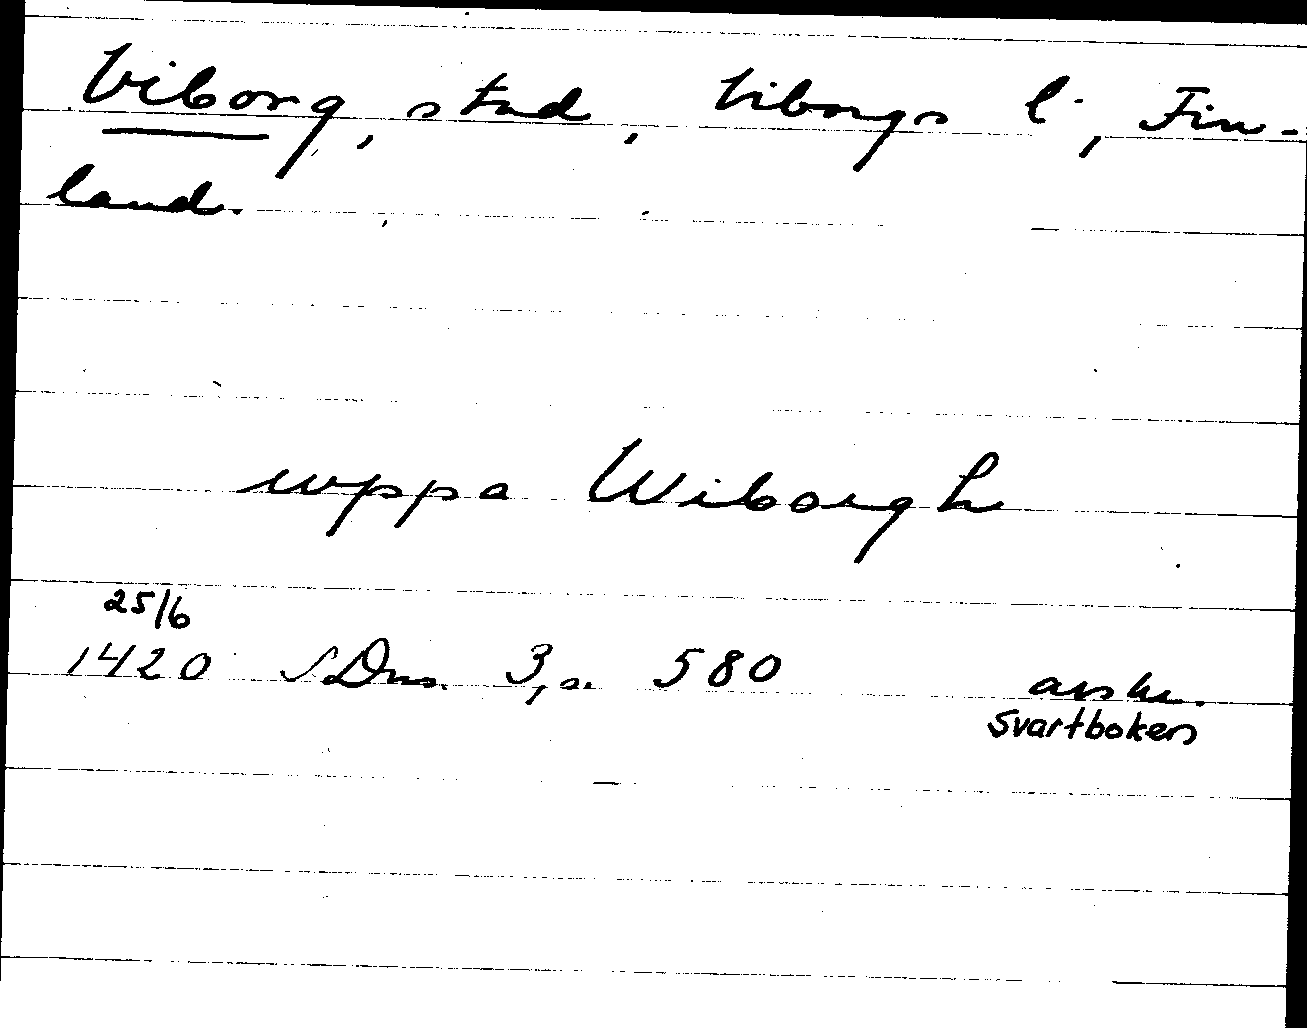 Viborg, stad, Viborgs l., Fin-
land.
uppa Wiborgh
25/6
1420 SDns. 3, s. 580 avskr.
Svartboken